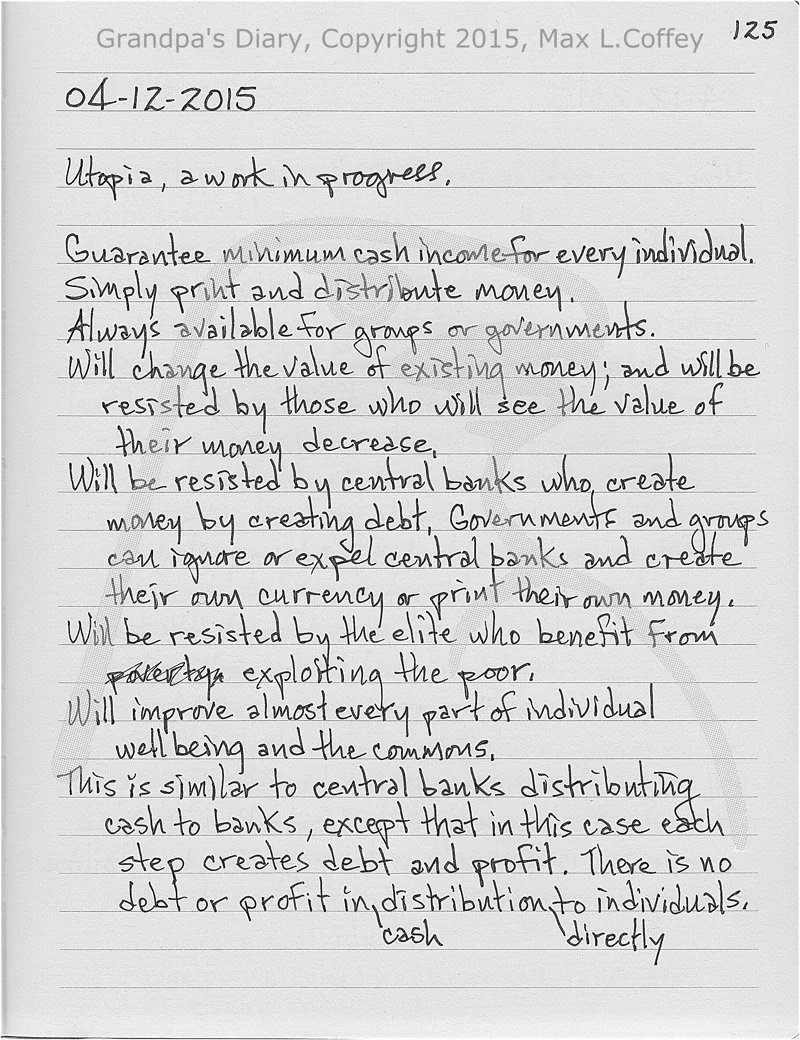 Grandpa's Diary, Copyright 2015, Max L.Coffey
125
04-12-2015
Utopia, a work in progress.
Guarantee minimum cash income for every individual.
Simply print and distribute money.
Always available for groups or governments.
Will change the value of existing money; and will be
resisted by those who will see the value of
their money decrease.
Will be resisted by central banks who create
money by creating debt. Governments and groups
can ignore or expel central banks and create
their own currency or print their own money.
Will be resisted by the elite who benefit from
poverty exploiting the poor.
Will improve almost every part of individual
well being and the commons.
This is similar to central banks distributing
cash to banks, except that in this case each
step creates debt and profit. There is no
debt or profit in distribution to individuals.
cash directly